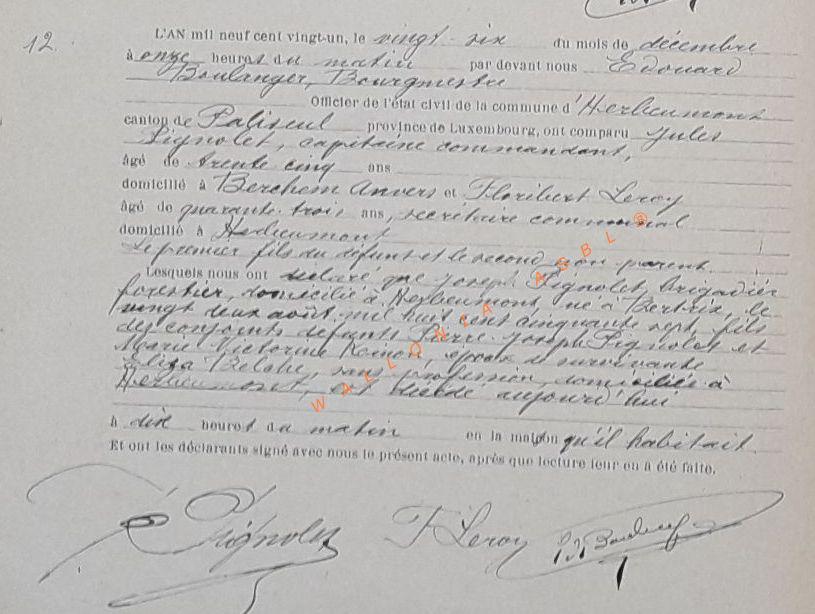 12.
L'AN mil neuf cent vingt-un, le vingt-six du mois de décembre
à onze heures du matin par devant nous Edouard
Boulanger, Bourgmestre
Officier de l'état civil de la commune d'Herbeumont
canton de Paliseul province de Luxembourg, ont comparu Jules
Pignolet, capitaine commandant,
âgé de trente cinq ans
domicilié à Berchem Anvers et Floribert Leroy
âgé de quarante-trois ans, secrétaire communal
domicilié à Herbeumont
Le premier fils du défunt et le second non parent
Lesquels nous ont déclaré que Joseph Pignolet, brigadier
forestier, domicilié à Herbeumont, né à Bertrix, le
vingt deux août mil huit cent cinquante sept, fils
des conjoints défunts Pierre-Joseph Pignolet et
Marie Victorine époux de survivante
Eliza sans profession, domiciliée à
Herbeumont, est décédé aujourd'hui
à dix heures du matin en la maison qu'il habitait.
Et ont les déclarants signé avec nous le présent acte, après que lecture leur en a été faite.
Pignolet F Leroy
WALLONIA ASBL ®